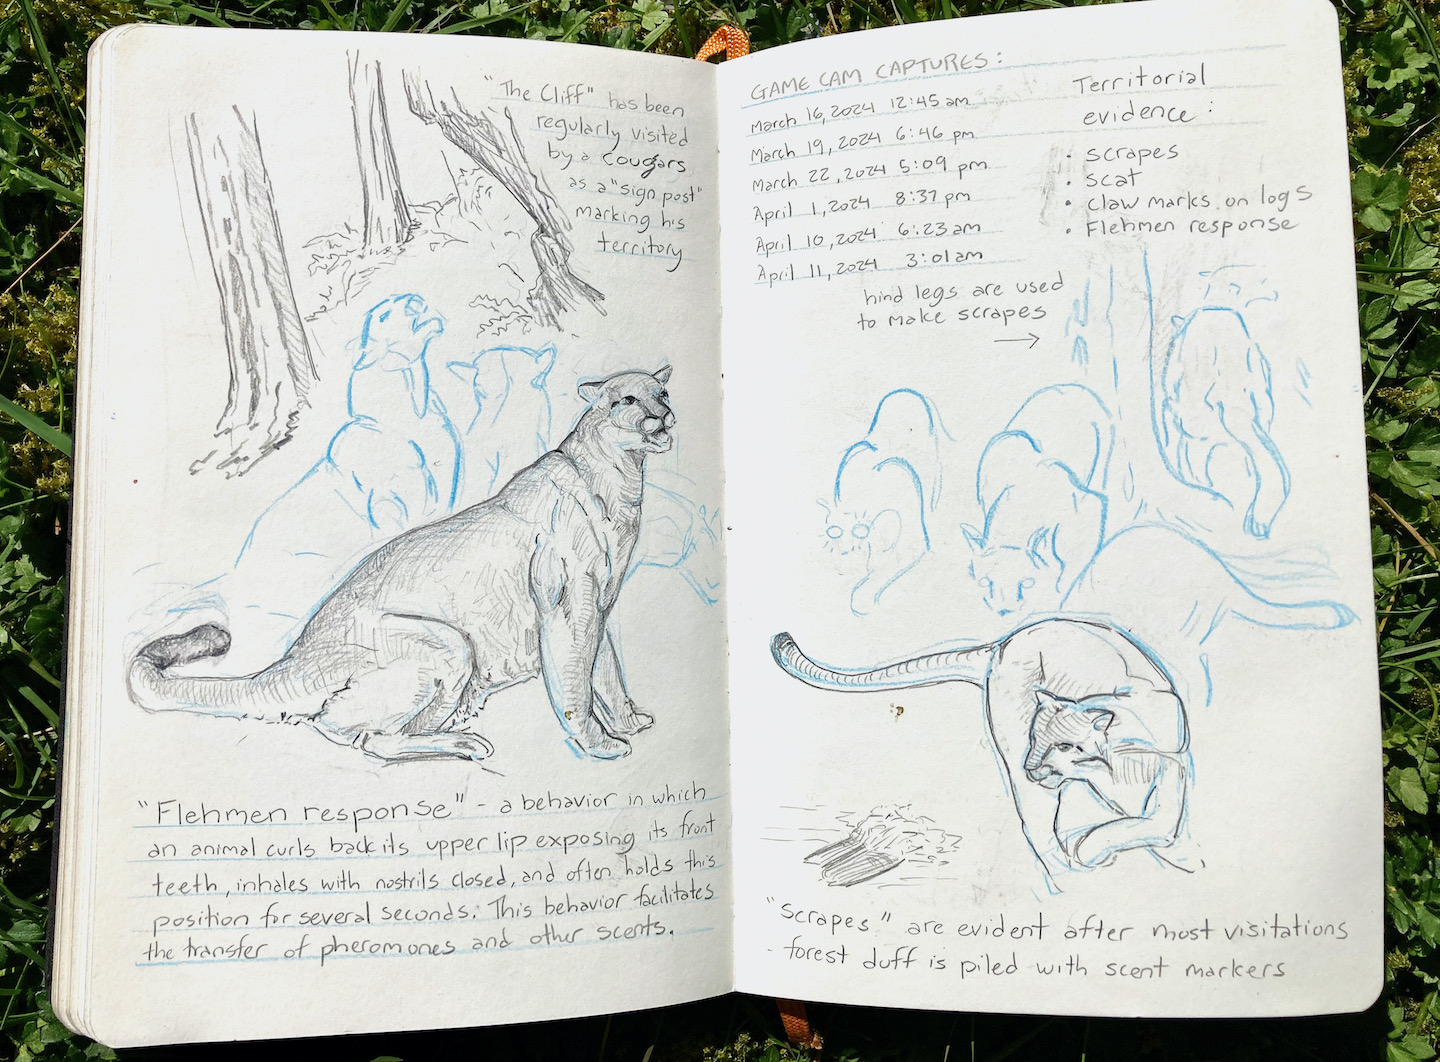 "The Cliff" has been
regularly visited
by a cougars
as a "sign post"
marking his
territory
"Flehmen response" - a behavior in which
an animal curls back its upper lip exposing its front
teeth, inhales with nostrils closed, and often holds this
position for several seconds. This behavior facilitates
the transfer of pheromones and other scents.
GAME CAM CAPTURES:
March 16, 2024 12:45 am
March 19, 2024 6:46 pm
March 22, 2024 5:09 pm
April 1, 2024 8:37 pm
April 10, 2024 6:23 am
April 11, 2024 3:01 am
Territorial
evidence:
• scrapes
• scat
• claw marks on logs
• Flehmen response
hind legs are used
to make scrapes
→
"Scrapes" are evident after most visitations
- forest duff is piled with scent markers